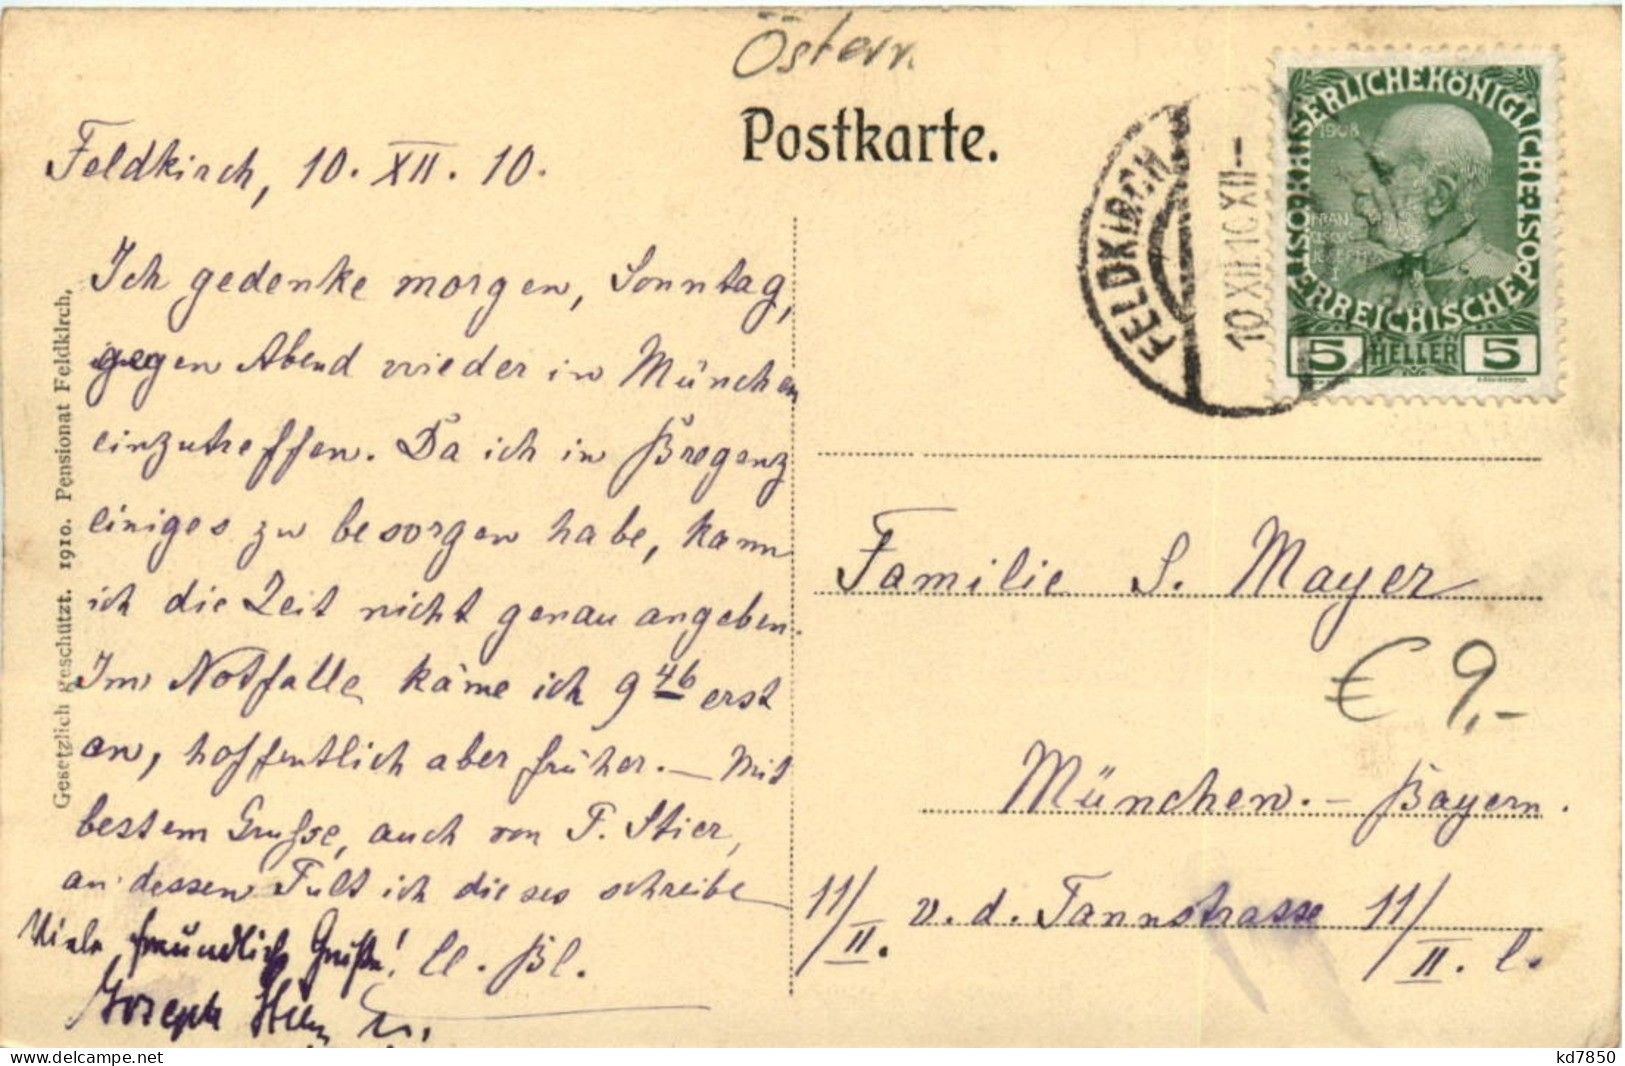 Östern
Postkarte.
FELDKIRCH
10 XII 10 XII--
KAISERLICHE KÖNIGLICHE
ÖSTERREICHISCHE POST
1908
5 HELLER 5
Feldkirch, 10. XII. 10.
Ich gedenke morgen, Sonntag,
gegen Abend wieder in München
einzutreffen. Da ich in Bregenz
einiges zu besorgen habe, kann
ich die Zeit nicht genau angeben.
Im Notfalle käme ich 9 46 erst
an, hoffentlich aber früher. – Mit
bestem Grusse, auch von F. Stier,
an dessen Pult ich dieses schreibe
Cl. Bl.
Viele freundlich Grüße!
Joseph
Gesetzlich geschützt. 1910. Pensionat Feldkirch,
Familie S. Mayer
€ 9,-
München. – Bayern.
11/II. v. d. Tannstrasse 11/II. l.
kd7850
www.delcampe.net